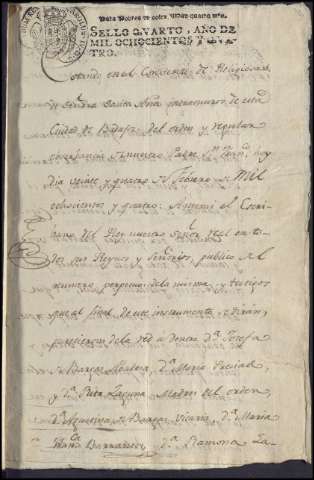 Para Pobres de solemnidad quatro mrs.
SELLO QVARTO, AÑO DE
MIL OCHOCIENTOS Y QVA-
TRO.
Estando en el Convento de Religiosas
de Señora Santa Ana extramuros de esta
Ciudad de Badajoz del orden y regular
observancia de nuestro Padre Sn. Fran.co hoy
dia veinte y quatro de Febrero de Mil
ochocientos y quatro: Antemi el Escri-
bano del Rey nuestro Señor y el en to-
dos sus Reynos y Señorios, publico del
numero perpetuo de la misma, y testigos
que al final de este instrumento se diran,
parecieron de la red a dentro D.ª Josefa
de Barcas Abadesa, D.ª Maria
y D.ª Rita Laguna Madres del orden,
D.ª Agustina de Bargas Vicaria, D.ª Maria
Barrantes, D.ª Ramona La-